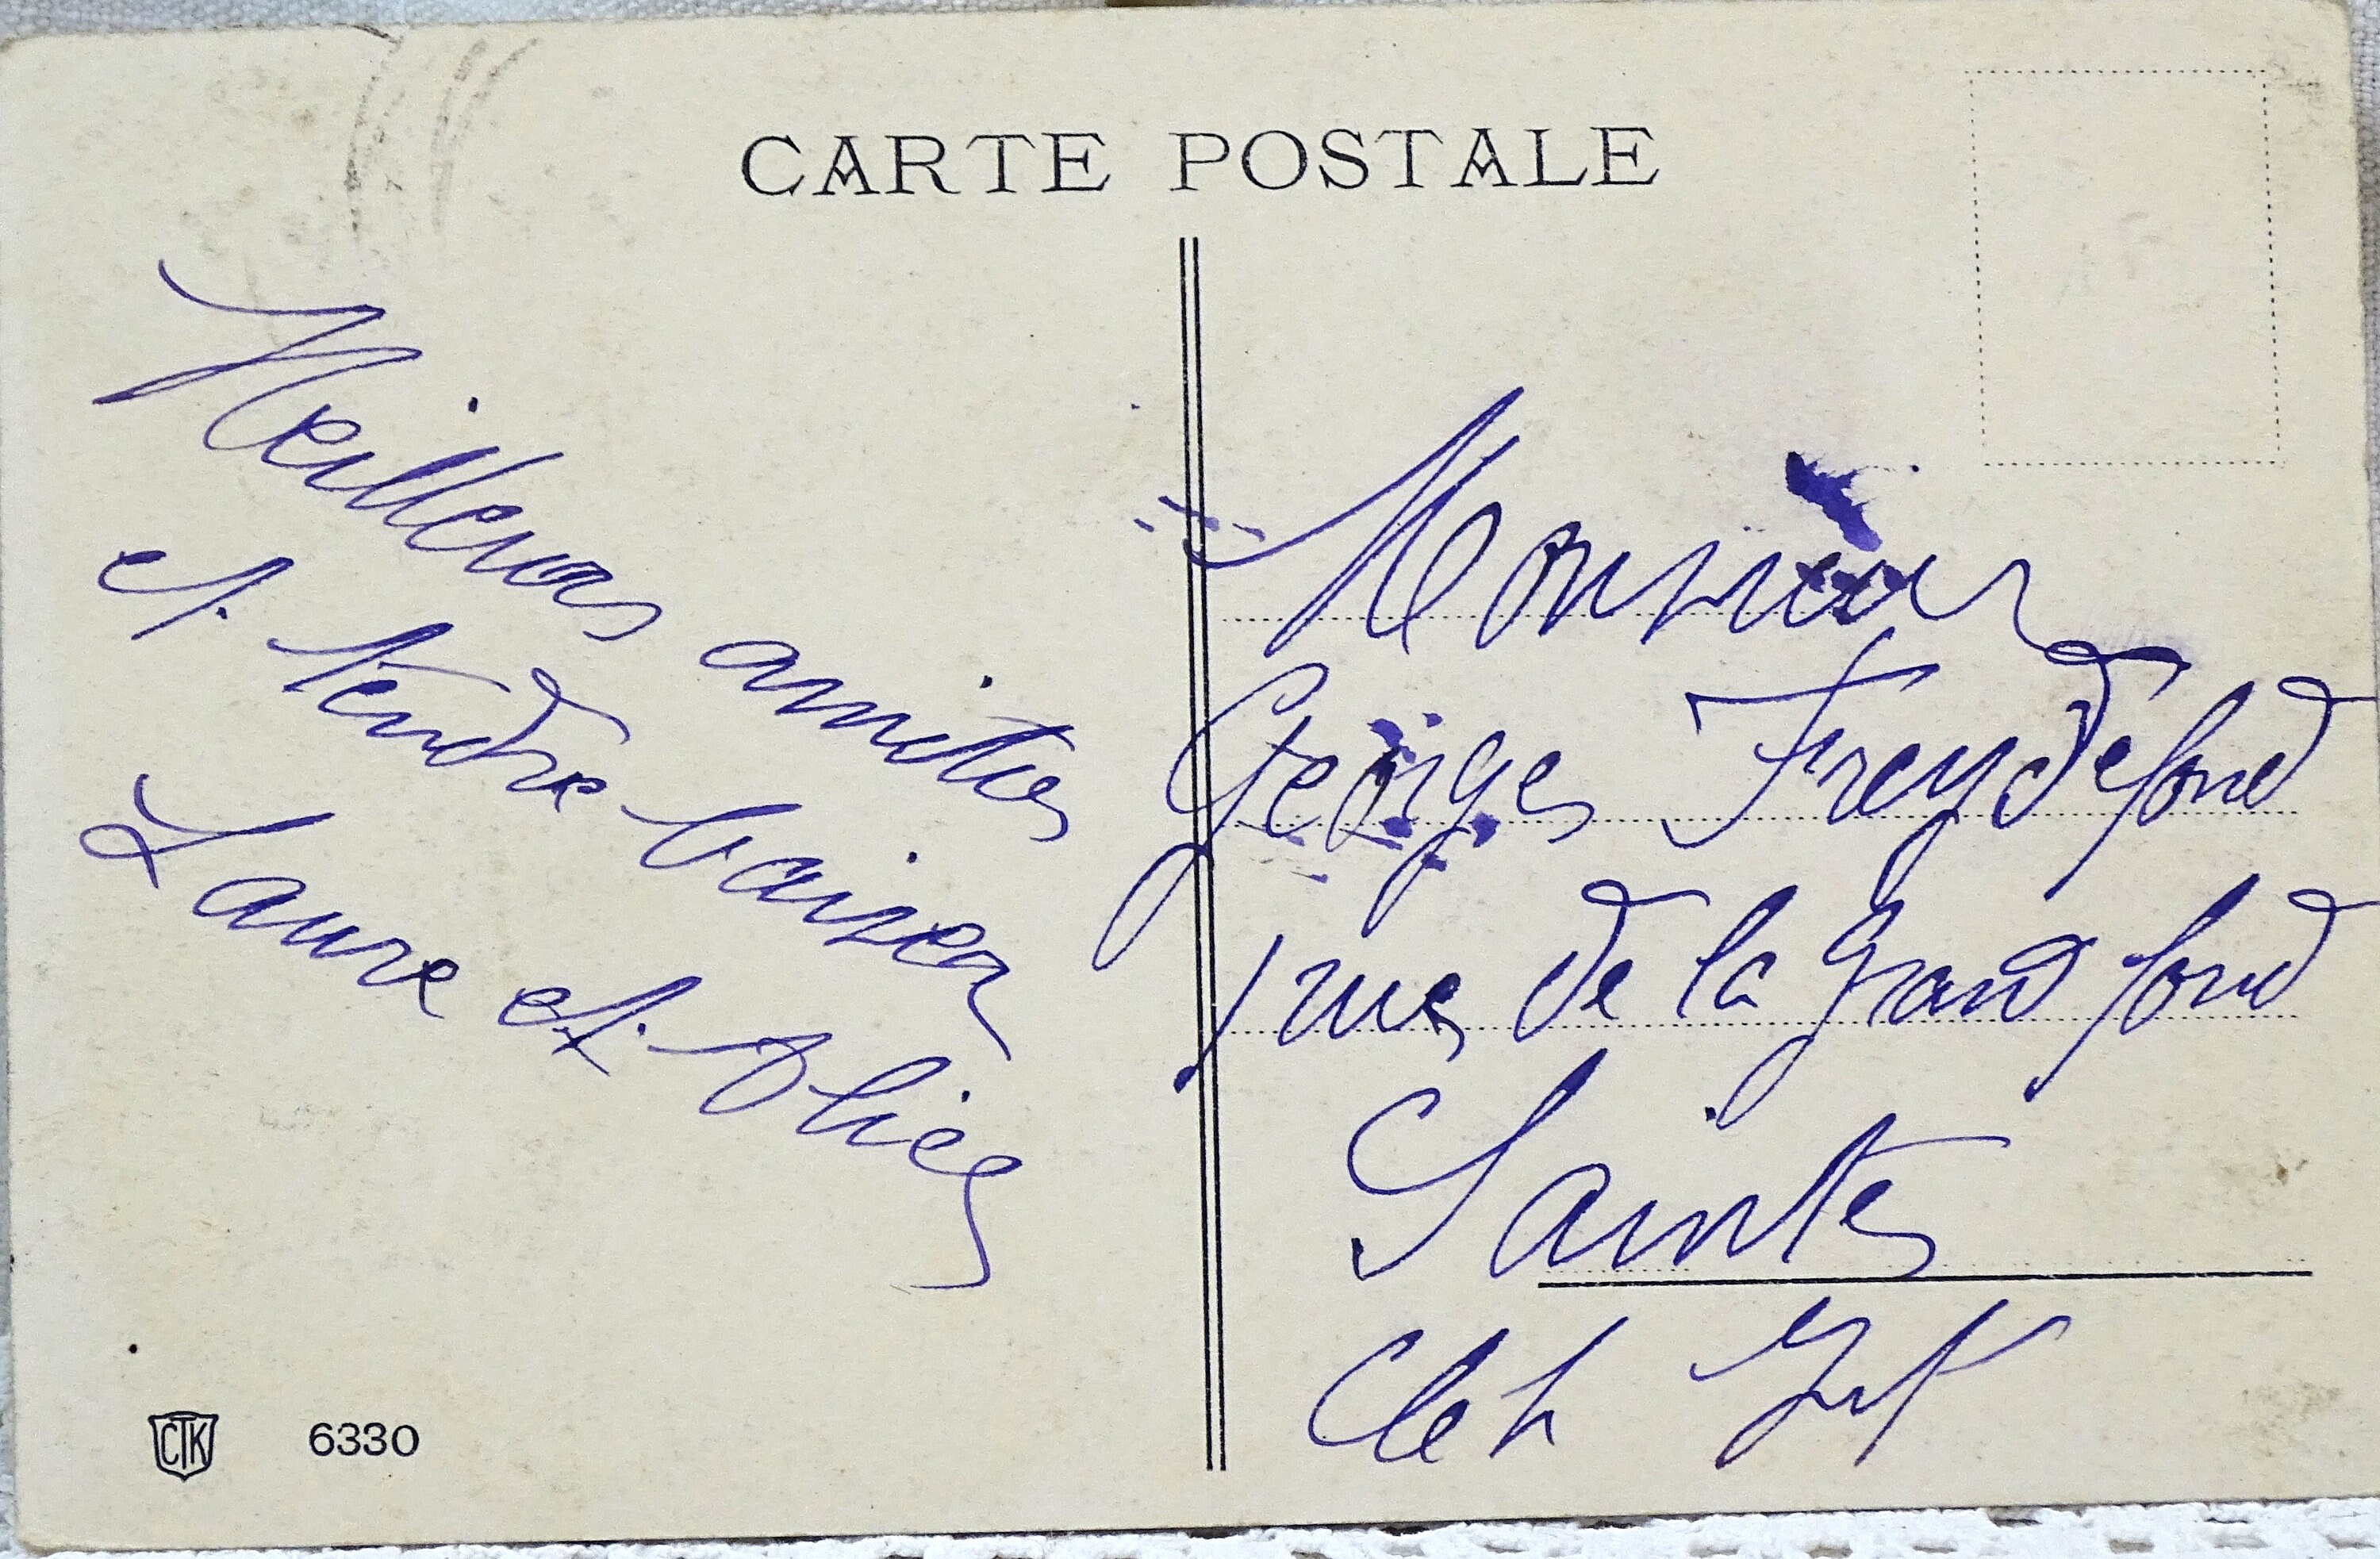 CARTE POSTALE
Meilleures amitiés
et tendre baiser
Laure et
Monsieur
Georges Freydefond
rue de la Grand fond
Saintes
Inf
CTK 6330